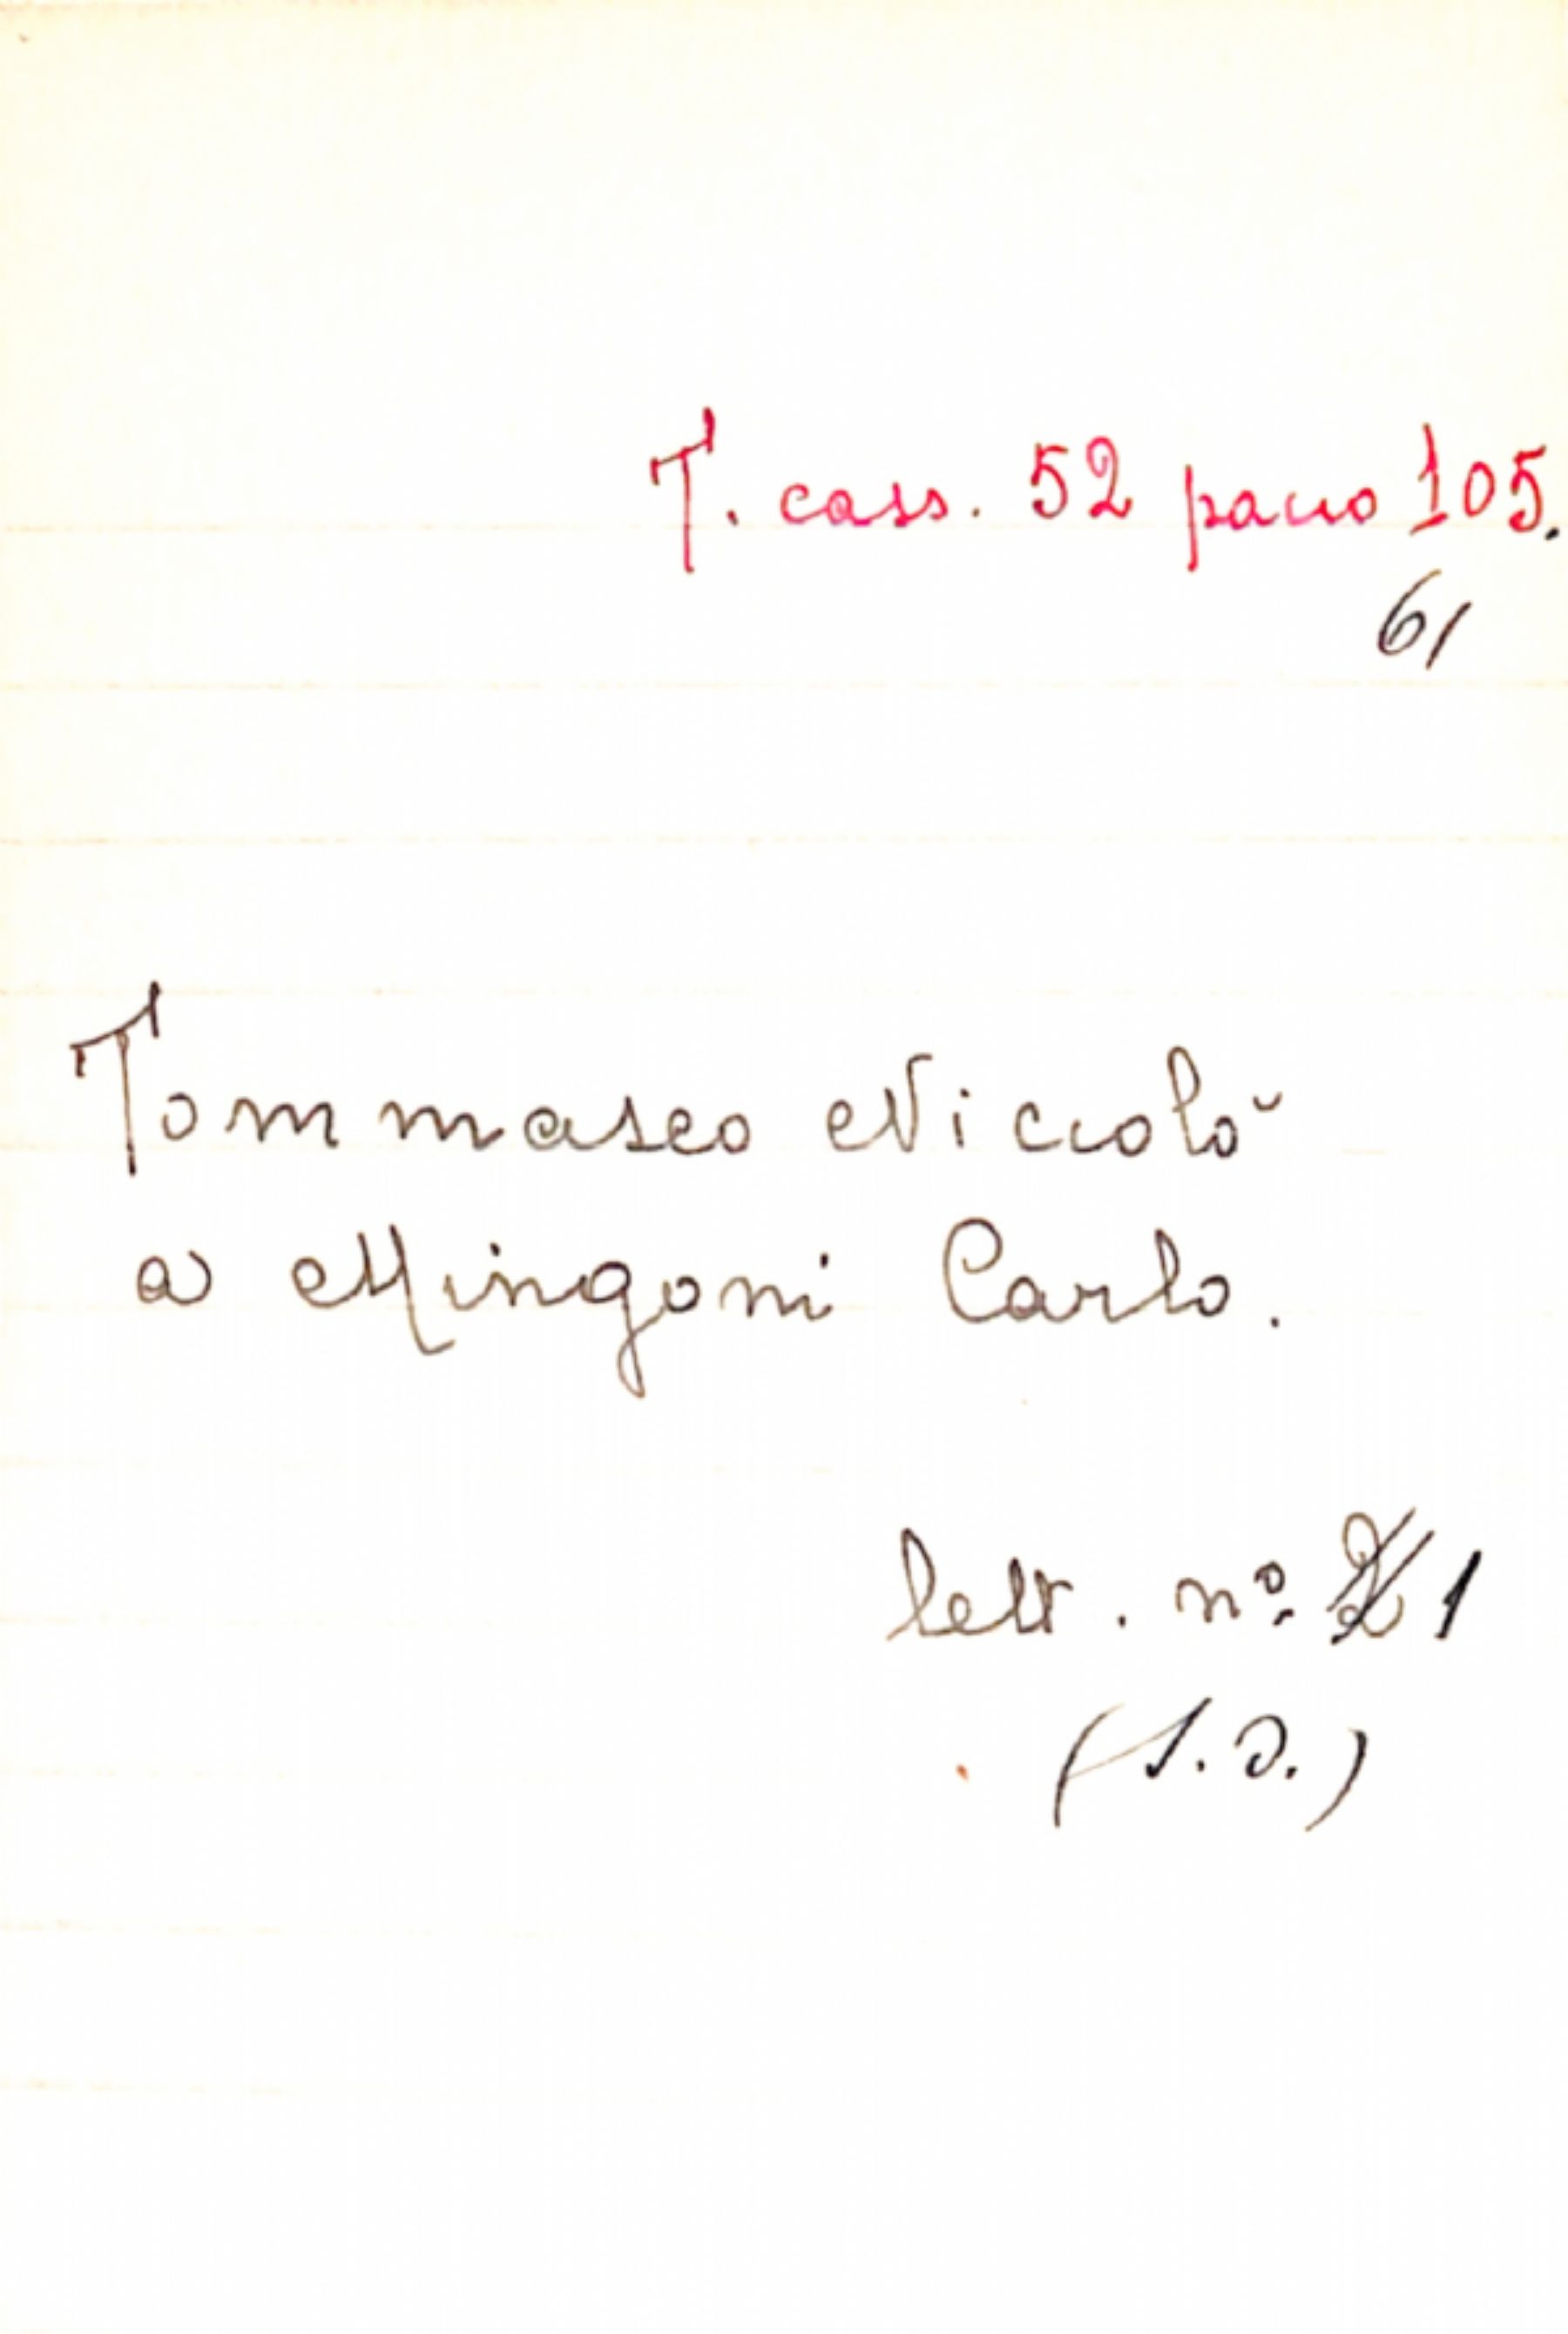 T. cass. 52 pacco 105.
61
Tommaseo Niccolò
a Mingoni Carlo.
lett. nº 2 1
(s.d.)